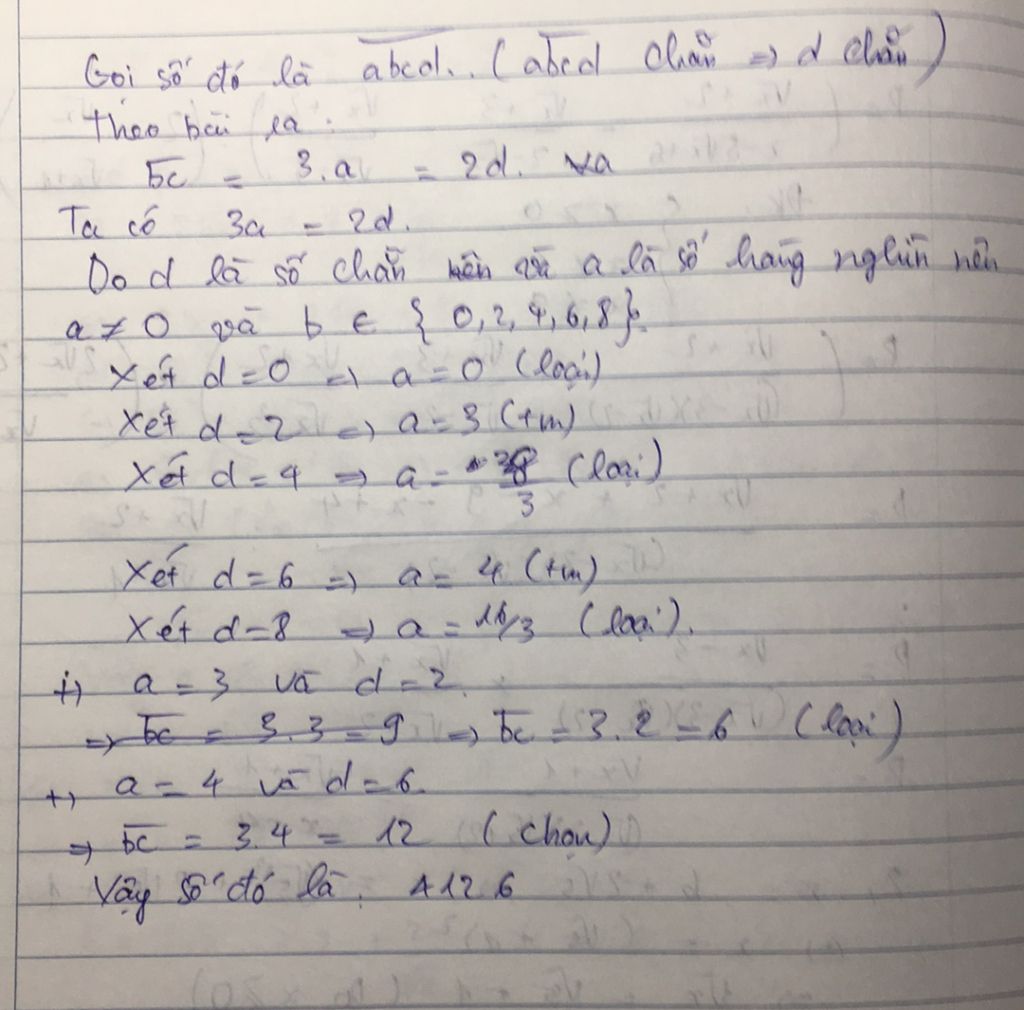 Gọi số đó là abcd. (abcd chẵn => d chẵn)
Theo bài ra:
bc = 3.a = 2d.
Ta có 3a = 2d.
Do d là số chẵn và a là số hàng nghìn nên
a ≠ 0 và b ∈ {0,2,4,6,8}.
Xét d=0 => a=0 (loại)
Xét d=2 => a=3 (tm)
Xét d=4 => a= 8/3 (loại)
Xét d=6 => a= 4 (tm)
Xét d=8 => a= 16/3 (loại).
+) a = 3 và d = 2.
=> bc = 3.3 = 9 => bc = 3.2 = 6 (loại)
+) a = 4 và d = 6.
=> bc = 3.4 = 12 (chọn)
Vậy số đó là: 4126